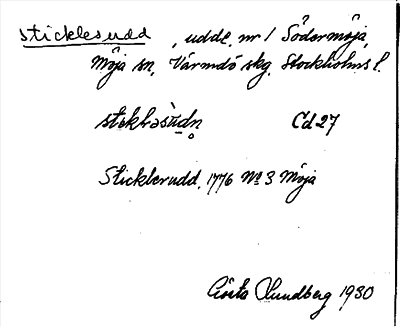 Sticklesudd, udde, nr 1 Södermöja,
Möja sn, Värmdö skg, Stockholms l.
Cd 27
Sticklerudd, 1776 No 3 Möja
Gösta Lundberg 1930